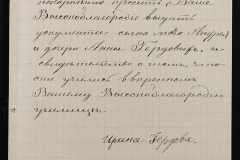 покорнейше просить Ваше
Высокоблагородіе выдать
документы сына моего Андрея
и дочери Анны Гордовыхъ, и
свидѣтельство о томъ, что
они учились в ввѣренномъ
Вашему Высокоблагородію
училищѣ.
Ирина Гордова.